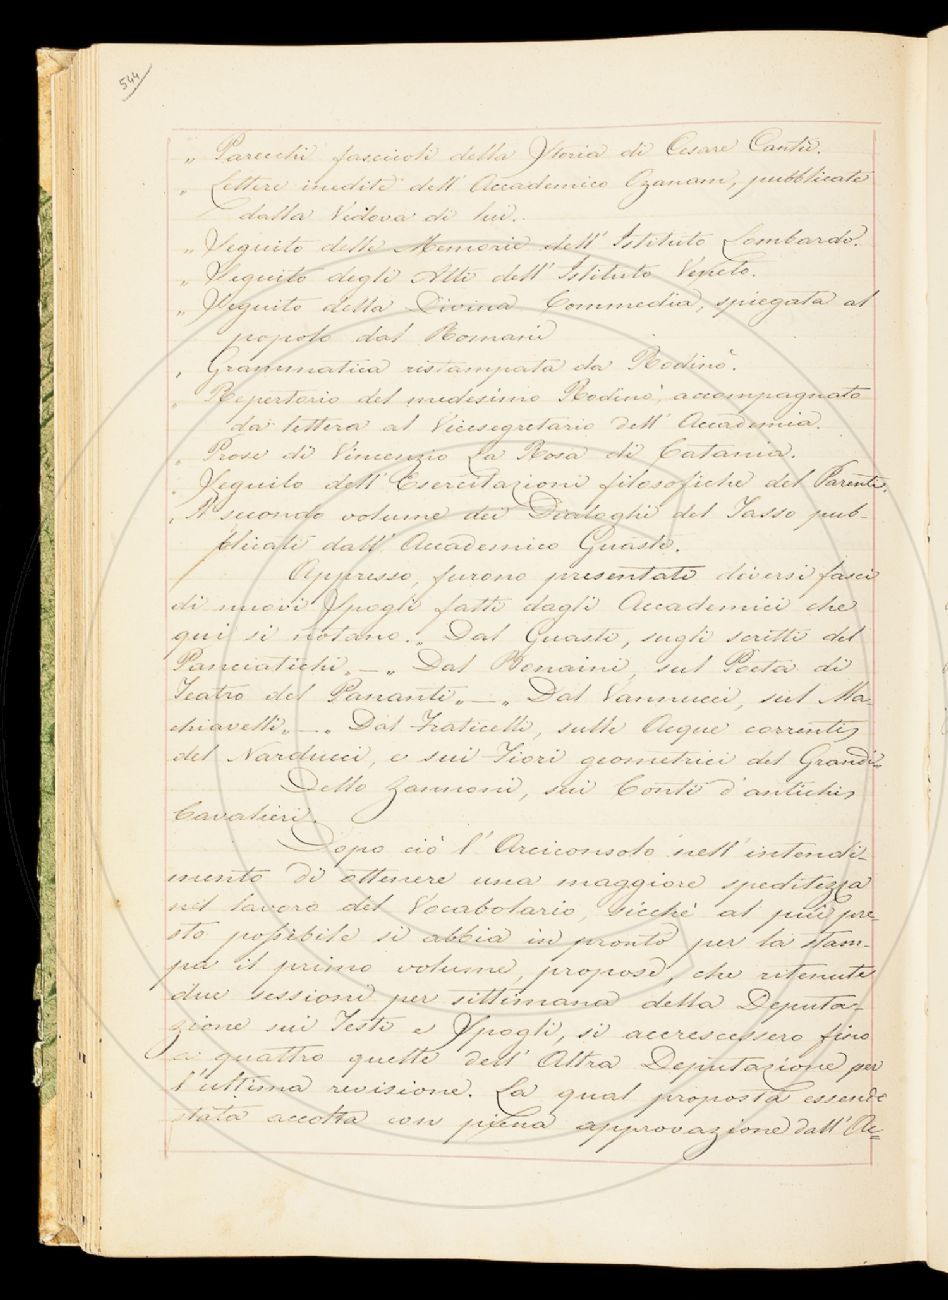 544
„ Parecchi fascicoli della Storia di Cesare Cantù.
„ Lettere inedite dell' Accademico Ozanam, pubblicate
dalla Vedova di lui.
„ Seguito delle Memorie dell' Istituto Lombardo.
„ Seguito degli Atti dell' Istituto Veneto.
„ Seguito della Divina Commedia, spiegata al
popolo dal Romani
„ Grammatica ristampata da Rodinò.
„ Repertorio del medesimo Rodinò, accompagnato
da lettera al Vicesegretario dell' Accademia.
„ Prose di Vincenzio La Rosa di Catania.
„ Seguito dell' Esercitazioni filosofiche del Parenti.
„ Il secondo volume dei Dialoghi del Tasso pub-
blicati dall' Accademico Guasti.
Appresso, furono presentati diversi fasci
di nuovi Spogli fatti dagli Accademici che
qui si notano. „ Dal Guasti, sugli scritti del
Panciatichi „ — „ Dal Bonaini, sul Poeta di
Teatro del Pananti „ — „ Dal Vannucci, sul Ma-
chiavelli „ — „ Dal Fraticelli, sulle Acque correnti
del Narducci, e sui Fiori geometrici del Grandi „
Dello Zannoni, sui Conti d'antichi
Cavalieri.
Dopo ciò l' Arciconsolo nell'intendi-
mento di ottenere una maggiore speditezza
nel lavoro del Vocabolario, sicchè al più pre-
sto possibile si abbia in pronto per la stam-
pa il primo volume, propose, che ritenute
due sessioni per settimana della Deputa-
zione sui Testi e Spogli, si accrescessero fino
a quattro quelle dell' Altra Deputazione per
l'ultima revisione. La qual proposta essendo
stata accolta con piena approvazione dall' Ac-